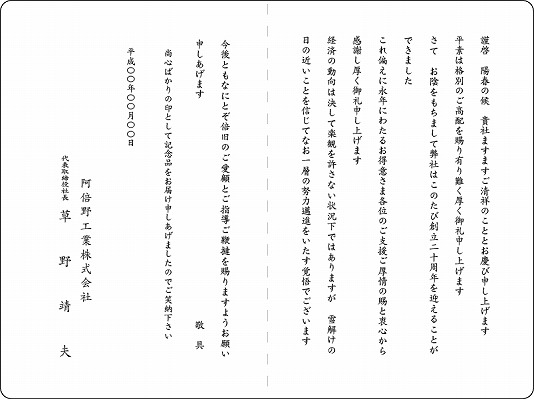 謹啓　陽春の候　貴社ますますご清祥のこととお慶び申し上げます
平素は格別のご高配を賜り有り難く厚く御礼申し上げます
さて　お陰をもちまして弊社はこのたび創立二十周年を迎えることが
できました
これ偏えに永年にわたるお得意さま各位のご支援ご厚情の賜と衷心から
感謝し厚く御礼申し上げます
経済の動向は決して楽観を許さない状況下ではありますが　雪解けの
日の近いことを信じてなお一層の努力邁進をいたす覚悟でございます
今後ともなにとぞ倍旧のご愛顧とご指導ご鞭撻を賜りますようお願い
申しあげます
敬具
尚心ばかりの印として記念品をお届け申しあげましたのでご笑納下さい
平成〇〇年〇〇月〇〇日
阿倍野工業株式会社
代表取締役社長　草野靖夫